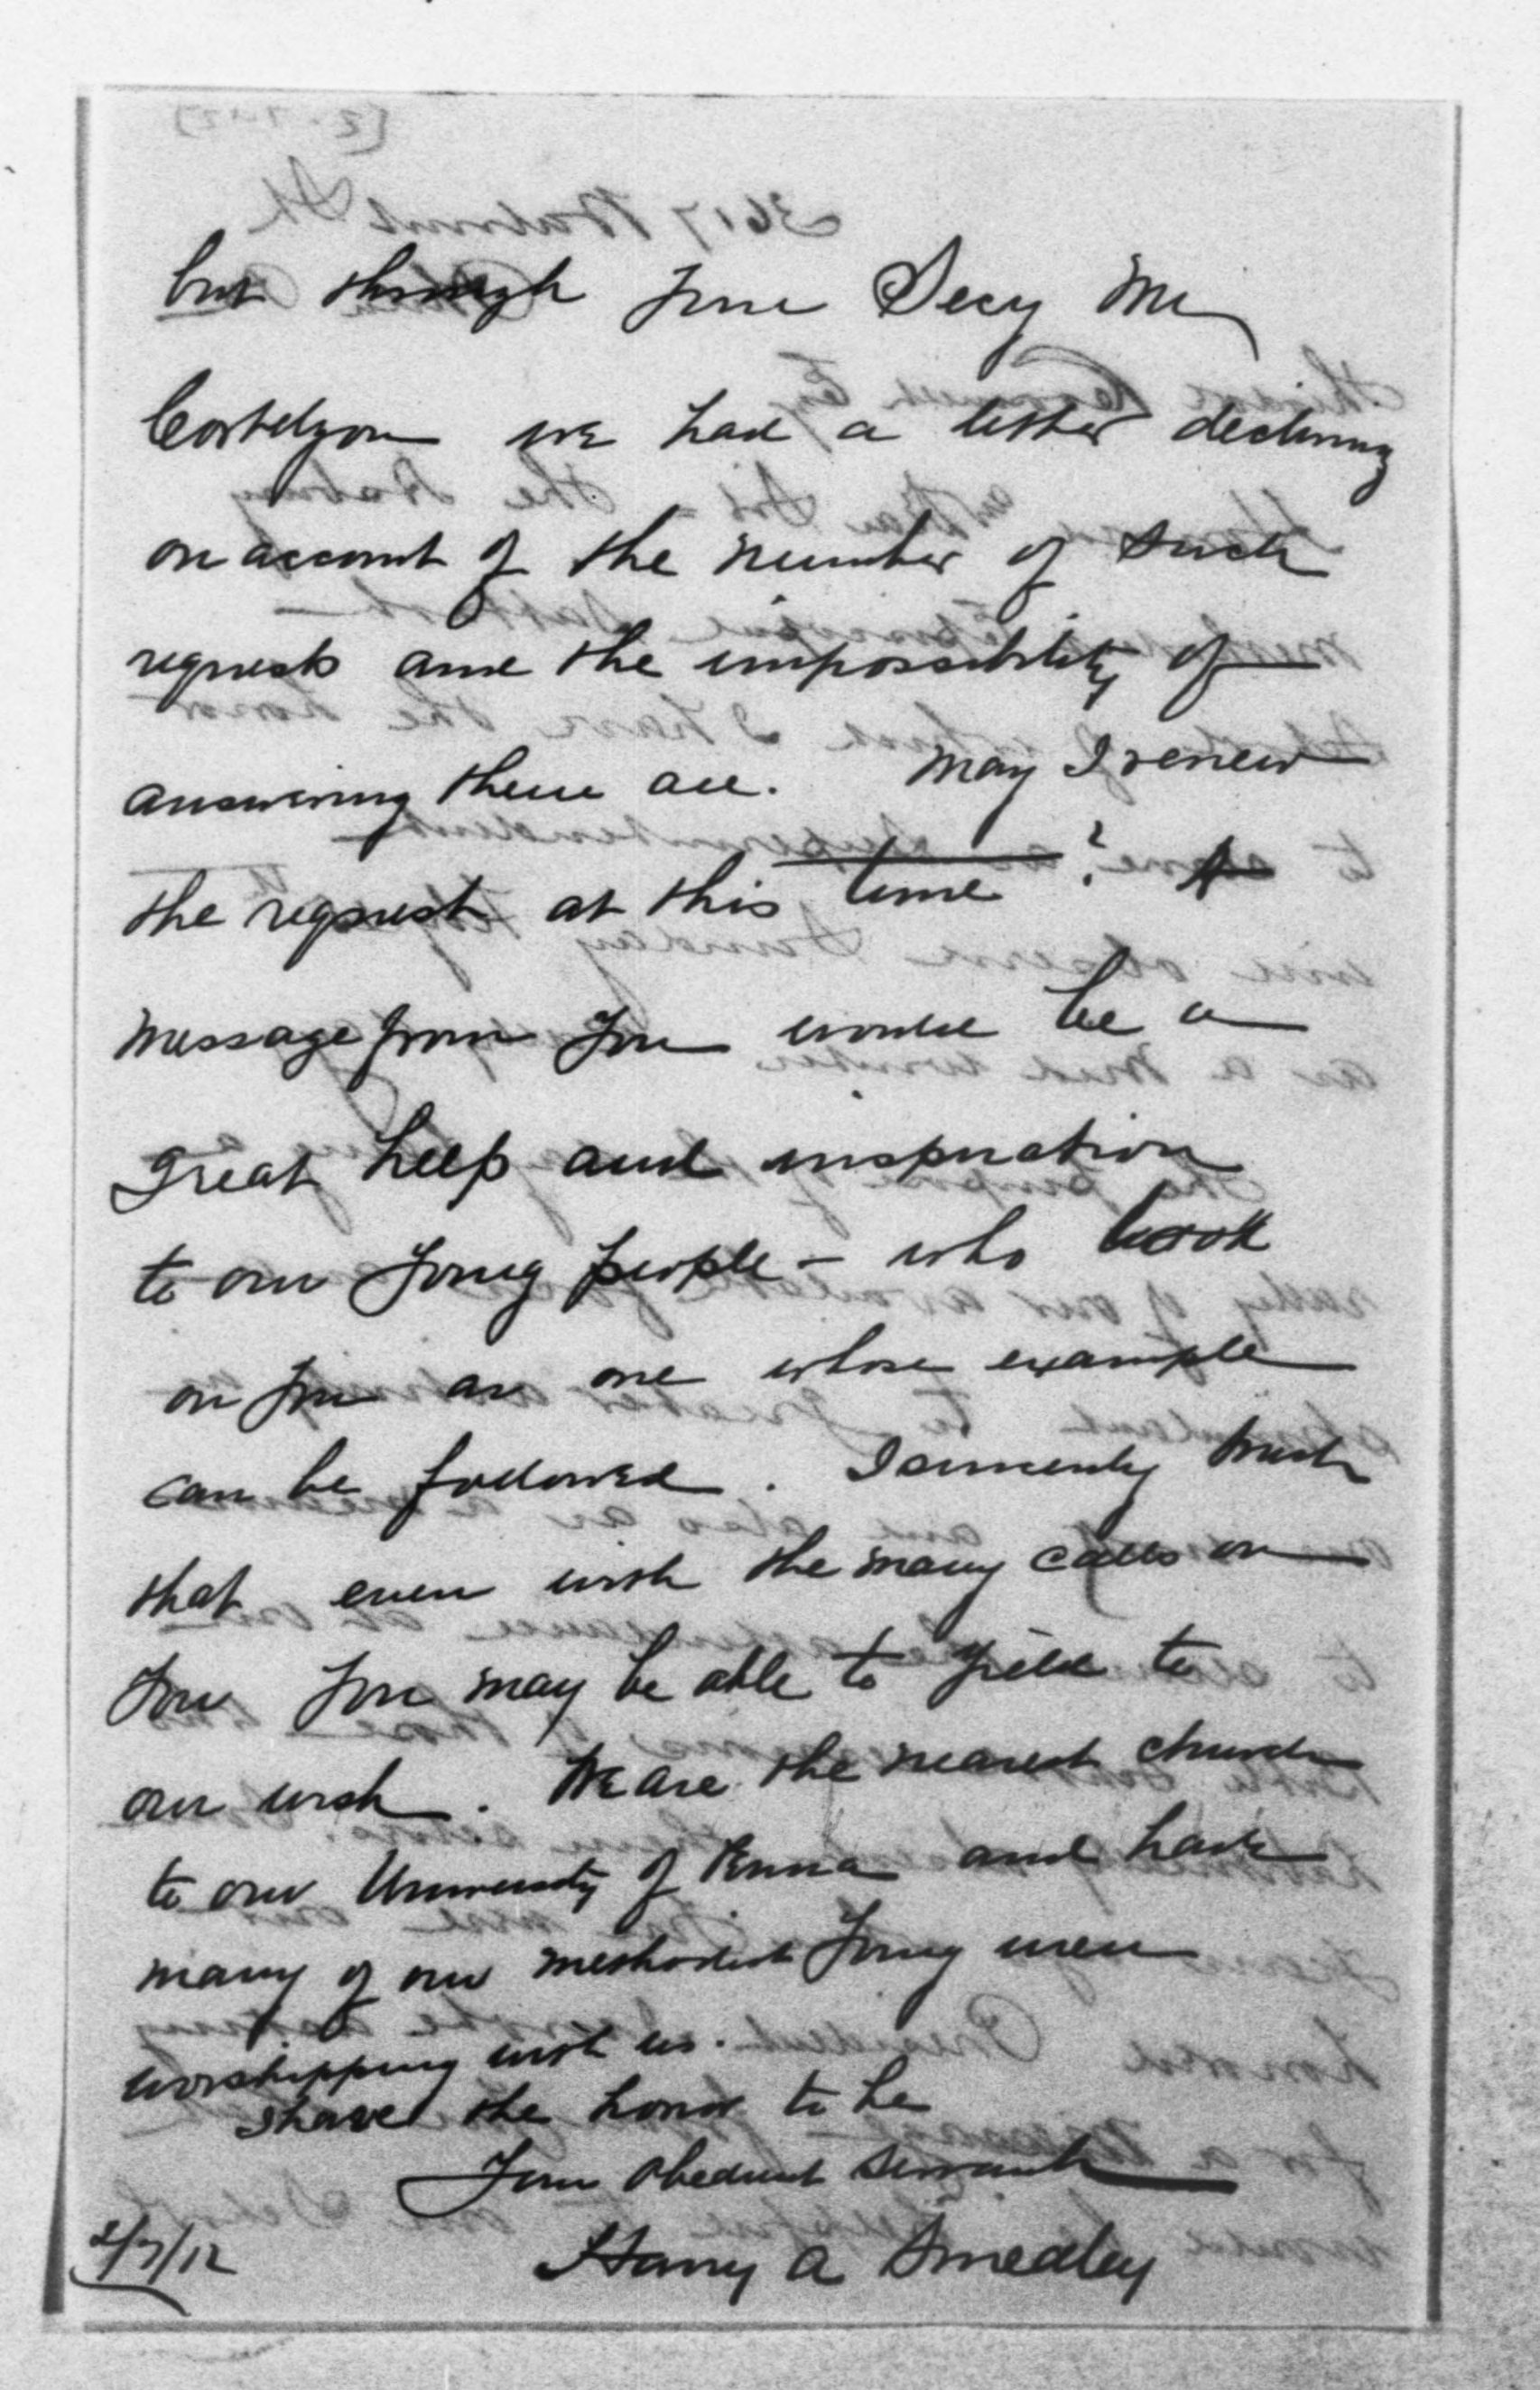 but through your Secy Mr
Cortelyou we had a letter declining
on account of the number of such
requests and the impossibility of
answering them all. May I renew
the request at this time? A
message from you would be a
great help and inspiration
to our young people - who look
on you as one whose example
can be followed. I sincerely trust
that even with the many calls on
you you may be able to yield to
our wish. We are the nearest church
to our University of Penna and have
many of our methodist young men
worshipping with us.
I have the honor to be
Your obedient servant
Harry A Smedley
2/7/12